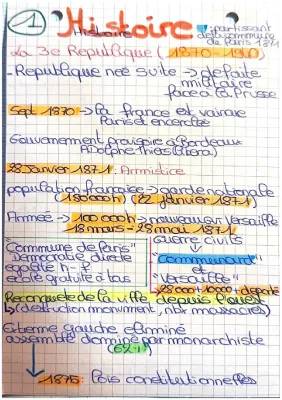 1 Histoire
* : partissant de la commune de Paris 1871
La 3e Republique (1870-1940)
- Republique neé suite → defaite
militaire
face a la Prusse
Sept 1870 → la france est vaincue
Paris et encerclée
Gouvernement provisoire à Bordeaux
Adolphe Thiers
28 Janvier 1871 : Armistice
population française → garde nationale
(180000h) (22 janvier 1871)
Armée → 100 000h → nouveau sur Versaille
18 mars - 28 mai 1871
guerre civils
"Commune de Paris"
Democratie directe
egalité h-f
ecole gratuite à tous
"Communard"
et
"Versaille"
Reconquete de la ville depuis l'ouest
↳ (destruction monument, nbr massacres)
Extreme gauche eliminé
assemblé dominé par monarchiste
1875 : lois constitutionnelles